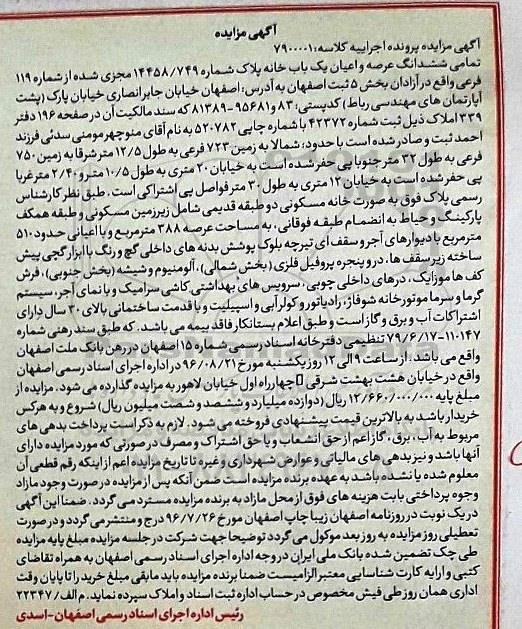 آگهی مزایده
آگهی مزایده پرونده اجراییه کلاسه: ۷۹۰۰۰۰۱
تمامی ششدانگ عرصه و اعیان یک باب خانه پلاک شماره ۱۴۴۵۸/۷۴۹ مجزی شده از شماره ۱۱۹
فرعی واقع در آزادان بخش ۵ ثبت اصفهان به آدرس: اصفهان خیابان جابر انصاری خیابان پارک (پشت
آپارتمان های مهندسی رباط) کدپستی: ۸۳ و ۹۵۶۸۱-۸۱۳۸۹ که سند مالکیت آن در صفحه ۱۹۶ دفتر
۳۳۹ املاک ذیل ثبت شماره ۴۲۳۷۲ با شماره چاپی ۵۲۰۷۸۲ به نام آقای منوچهر مومنی سدئی فرزند
احمد ثبت و صادر شده است با حدود: شمالا به زمین ۷۲۳ فرعی به طول ۱۲/۵ متر شرقا به زمین ۷۵۰
فرعی به طول ۳۲ متر جنوبا پی حفر شده است به خیابان ۲۰ متری به طول ۱۰/۵ متر و ۲/۴۰ متر غربا
پی حفر شده است به خیابان ۱۲ متری به طول ۳۰ متر فواصل پی اشتراکی است. طبق نظر کارشناس
رسمی پلاک فوق به صورت خانه مسکونی دو طبقه قدیمی شامل زیرزمین مسکونی و طبقه همکف
پارکینگ و حیاط به انضمام طبقه فوقانی، به مساحت عرصه ۳۸۸ مترمربع و با اعیانی حدود ۵۱۰
مترمربع با دیوارهای آجر و سقف ای تیرچه بلوک پوشش بدنه های داخلی گچ و رنگ با ابزار گچی پیش
ساخته زیر سقف ها، در و پنجره پروفیل فلزی (بخش شمالی)، آلومنیوم و شیشه (بخش جنوبی)، فرش
کف ها موزائیک، درهای داخلی چوبی، سرویس های بهداشتی کاشی سرامیک و با نمای آجر، سیستم
گرما و سرما موتورخانه شوفاژ، رادیاتور و کولر آبی و اسپیلیت و با قدمت ساختمانی بالای ۳۰ سال دارای
اشتراکات آب و برق و گاز است و طبق اعلام بستانکار فاقد بیمه می باشد. که طبق سند رهنی شماره
۱۱۰۱۴۷-۷۹/۶/۱۷ تنظیمی دفترخانه اسناد رسمی شماره ۱۵ اصفهان در رهن بانک ملت اصفهان
واقع می باشد. از ساعت ۹ الی ۱۲ روز یکشنبه مورخ ۹۶/۰۸/۲۱ در اداره اجرای اسناد رسمی اصفهان
واقع در خیابان هشت بهشت شرقی چهارراه اول خیابان لاهور به مزایده گذارده می شود. مزایده از
مبلغ پایه ۱۲/۶۶۰/۰۰۰/۰۰۰ ریال (دوازده میلیارد و ششصد و شصت میلیون ریال) شروع و به هرکس
خریدار باشد به بالاترین قیمت پیشنهادی فروخته می شود. لازم به ذکر است پرداخت بدهی های
مربوط به آب، برق، گاز اعم از حق انشعاب و یا حق اشتراک و مصرف در صورتی که مورد مزایده دارای
آنها باشد و نیز بدهی های مالیاتی و عوارض شهرداری و غیره تا تاریخ مزایده اعم از اینکه رقم قطعی آن
معلوم شده یا نشده باشد به عهده برنده مزایده است ضمن آنکه پس از مزایده در صورت وجود مازاد
وجوه پرداختی بابت هزینه های فوق از محل مازاد به برنده مزایده مسترد می گردد. ضمنا این آگهی
در یک نوبت در روزنامه اصفهان زیبا چاپ اصفهان مورخ ۹۶/۷/۲۶ درج و منتشر می گردد و در صورت
تعطیلی روز مزایده به روز بعد موکول می گردد توضیحا جهت شرکت در جلسه مزایده مبلغ پایه مزایده
طی چک تضمین شده بانک ملی ایران در وجه اداره اجرای اسناد رسمی اصفهان به همراه تقاضای
کتبی و ارایه کارت شناسایی معتبر الزامیست ضمنا برنده مزایده باید مابقی مبلغ خرید را تا پایان وقت
اداری همان روز طی فیش مخصوص در حساب اداره ثبت اسناد و املاک سپرده نماید. م الف/۲۲۳۴۷
رئیس اداره اجرای اسناد رسمی اصفهان-اسدی